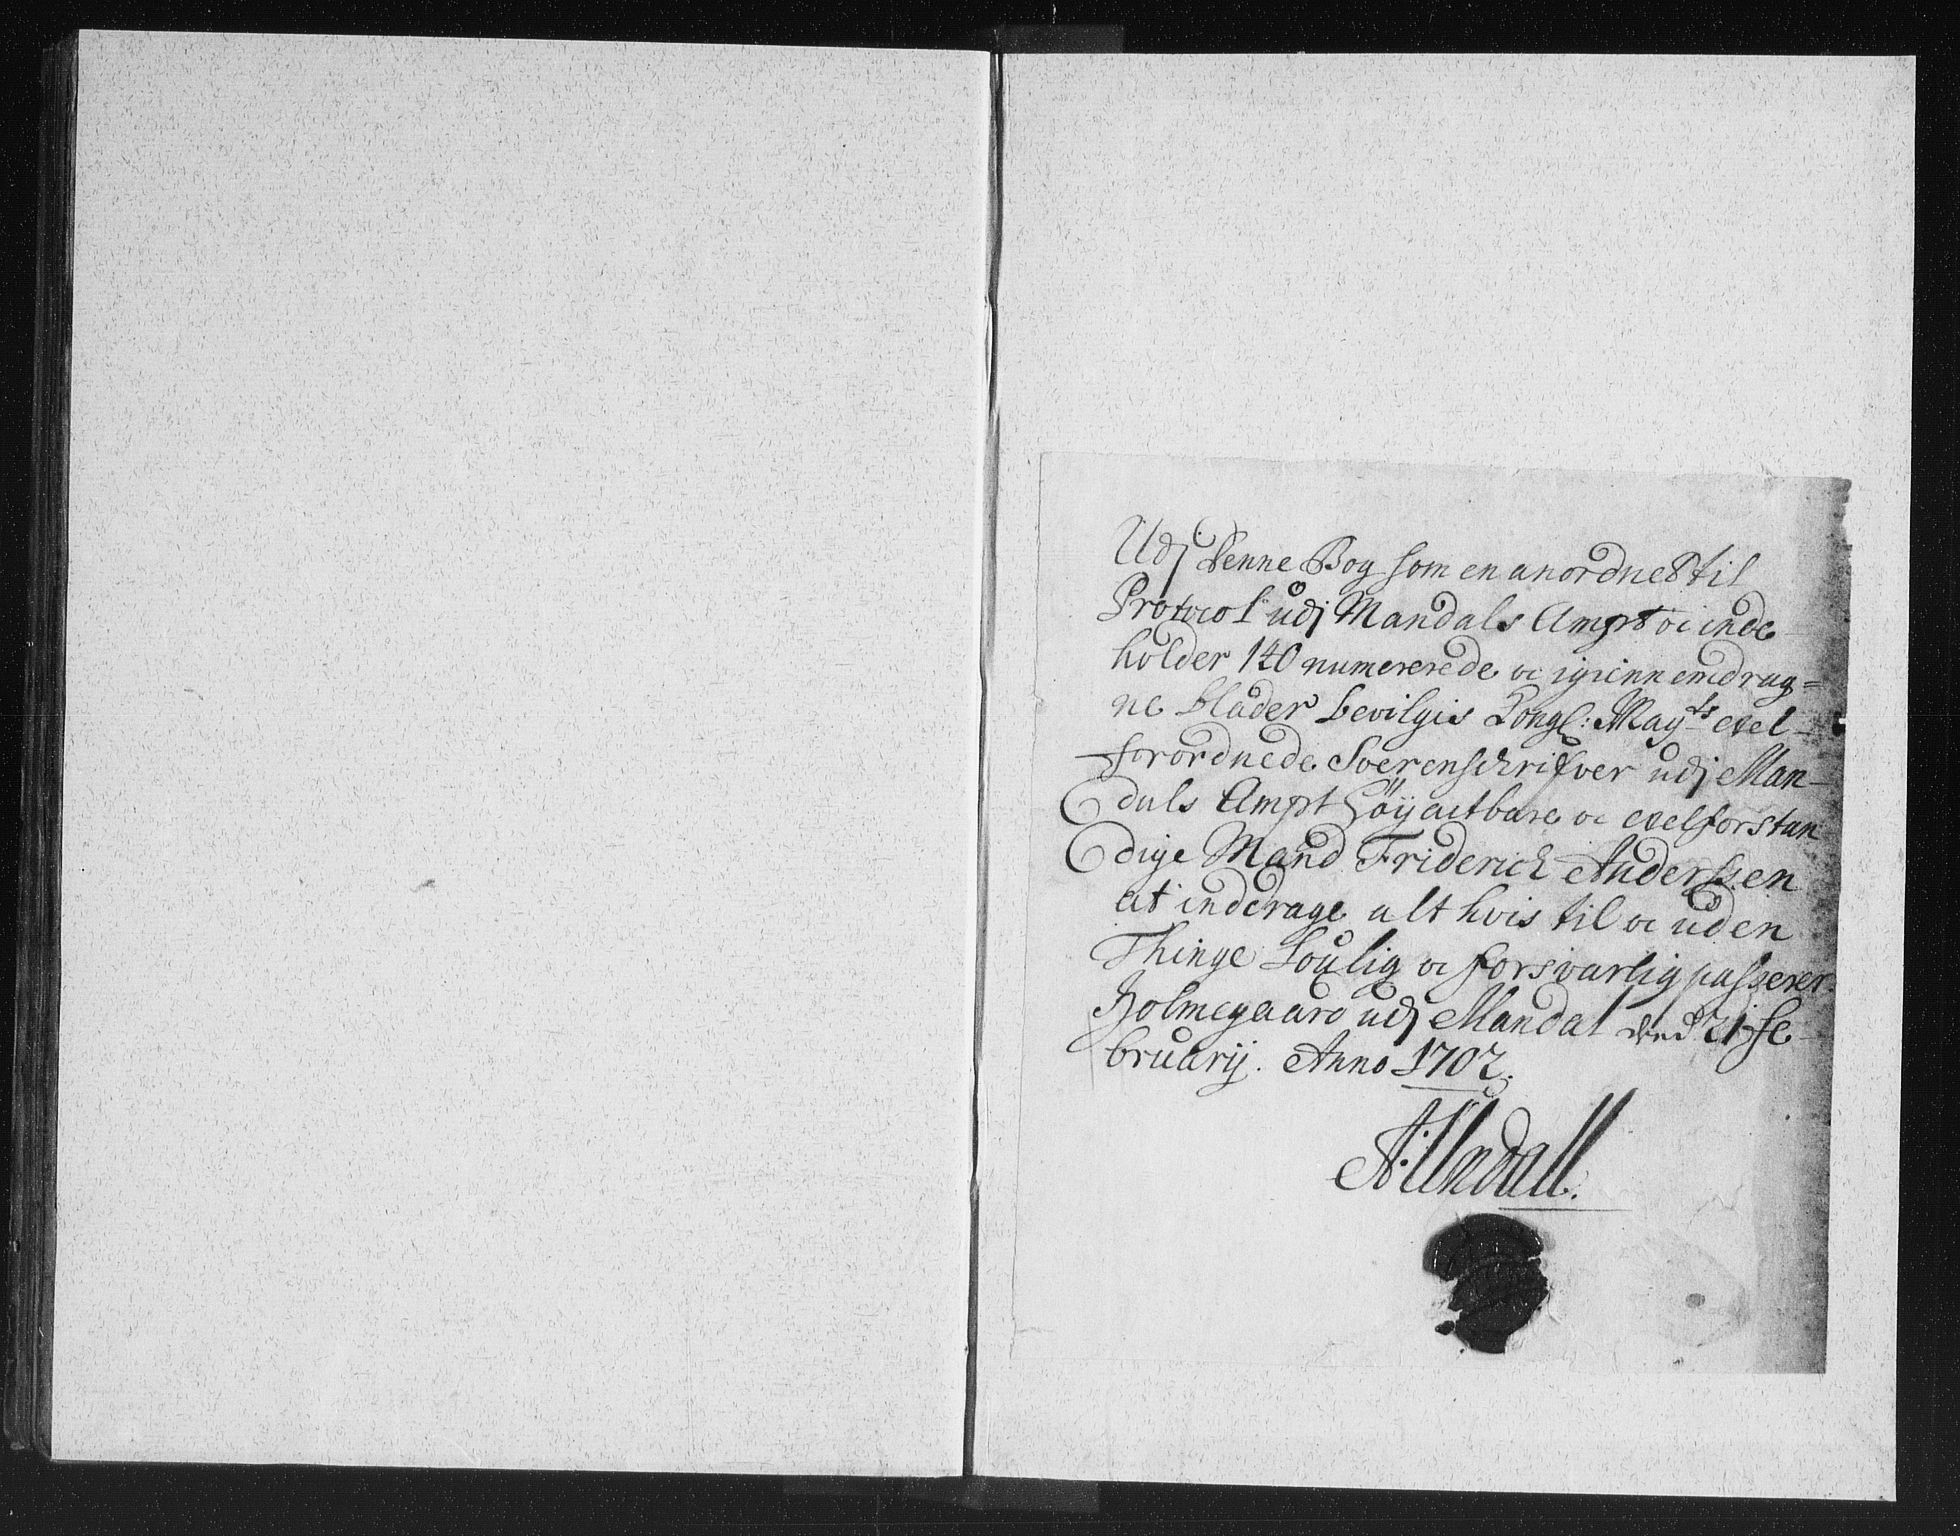 Udj Denne Bog som en anordnet til
Protocol udj Mandals Ampt oc inde
holder 140 numererede oc igienemdrag=
ne blader bevilgis Kongl: Mayts vel-
forordnede Soerenschrifver udj Man-
dals Ampt Höÿactbare oc velforstan
dige Mand Friderich Anderssen
at inddrage alt hvis til oc uden
Thinge Loulig oc forsvarlig passerer.
Holmegaard udj Mandal 21 Fe-
bruarij. Anno 1702.